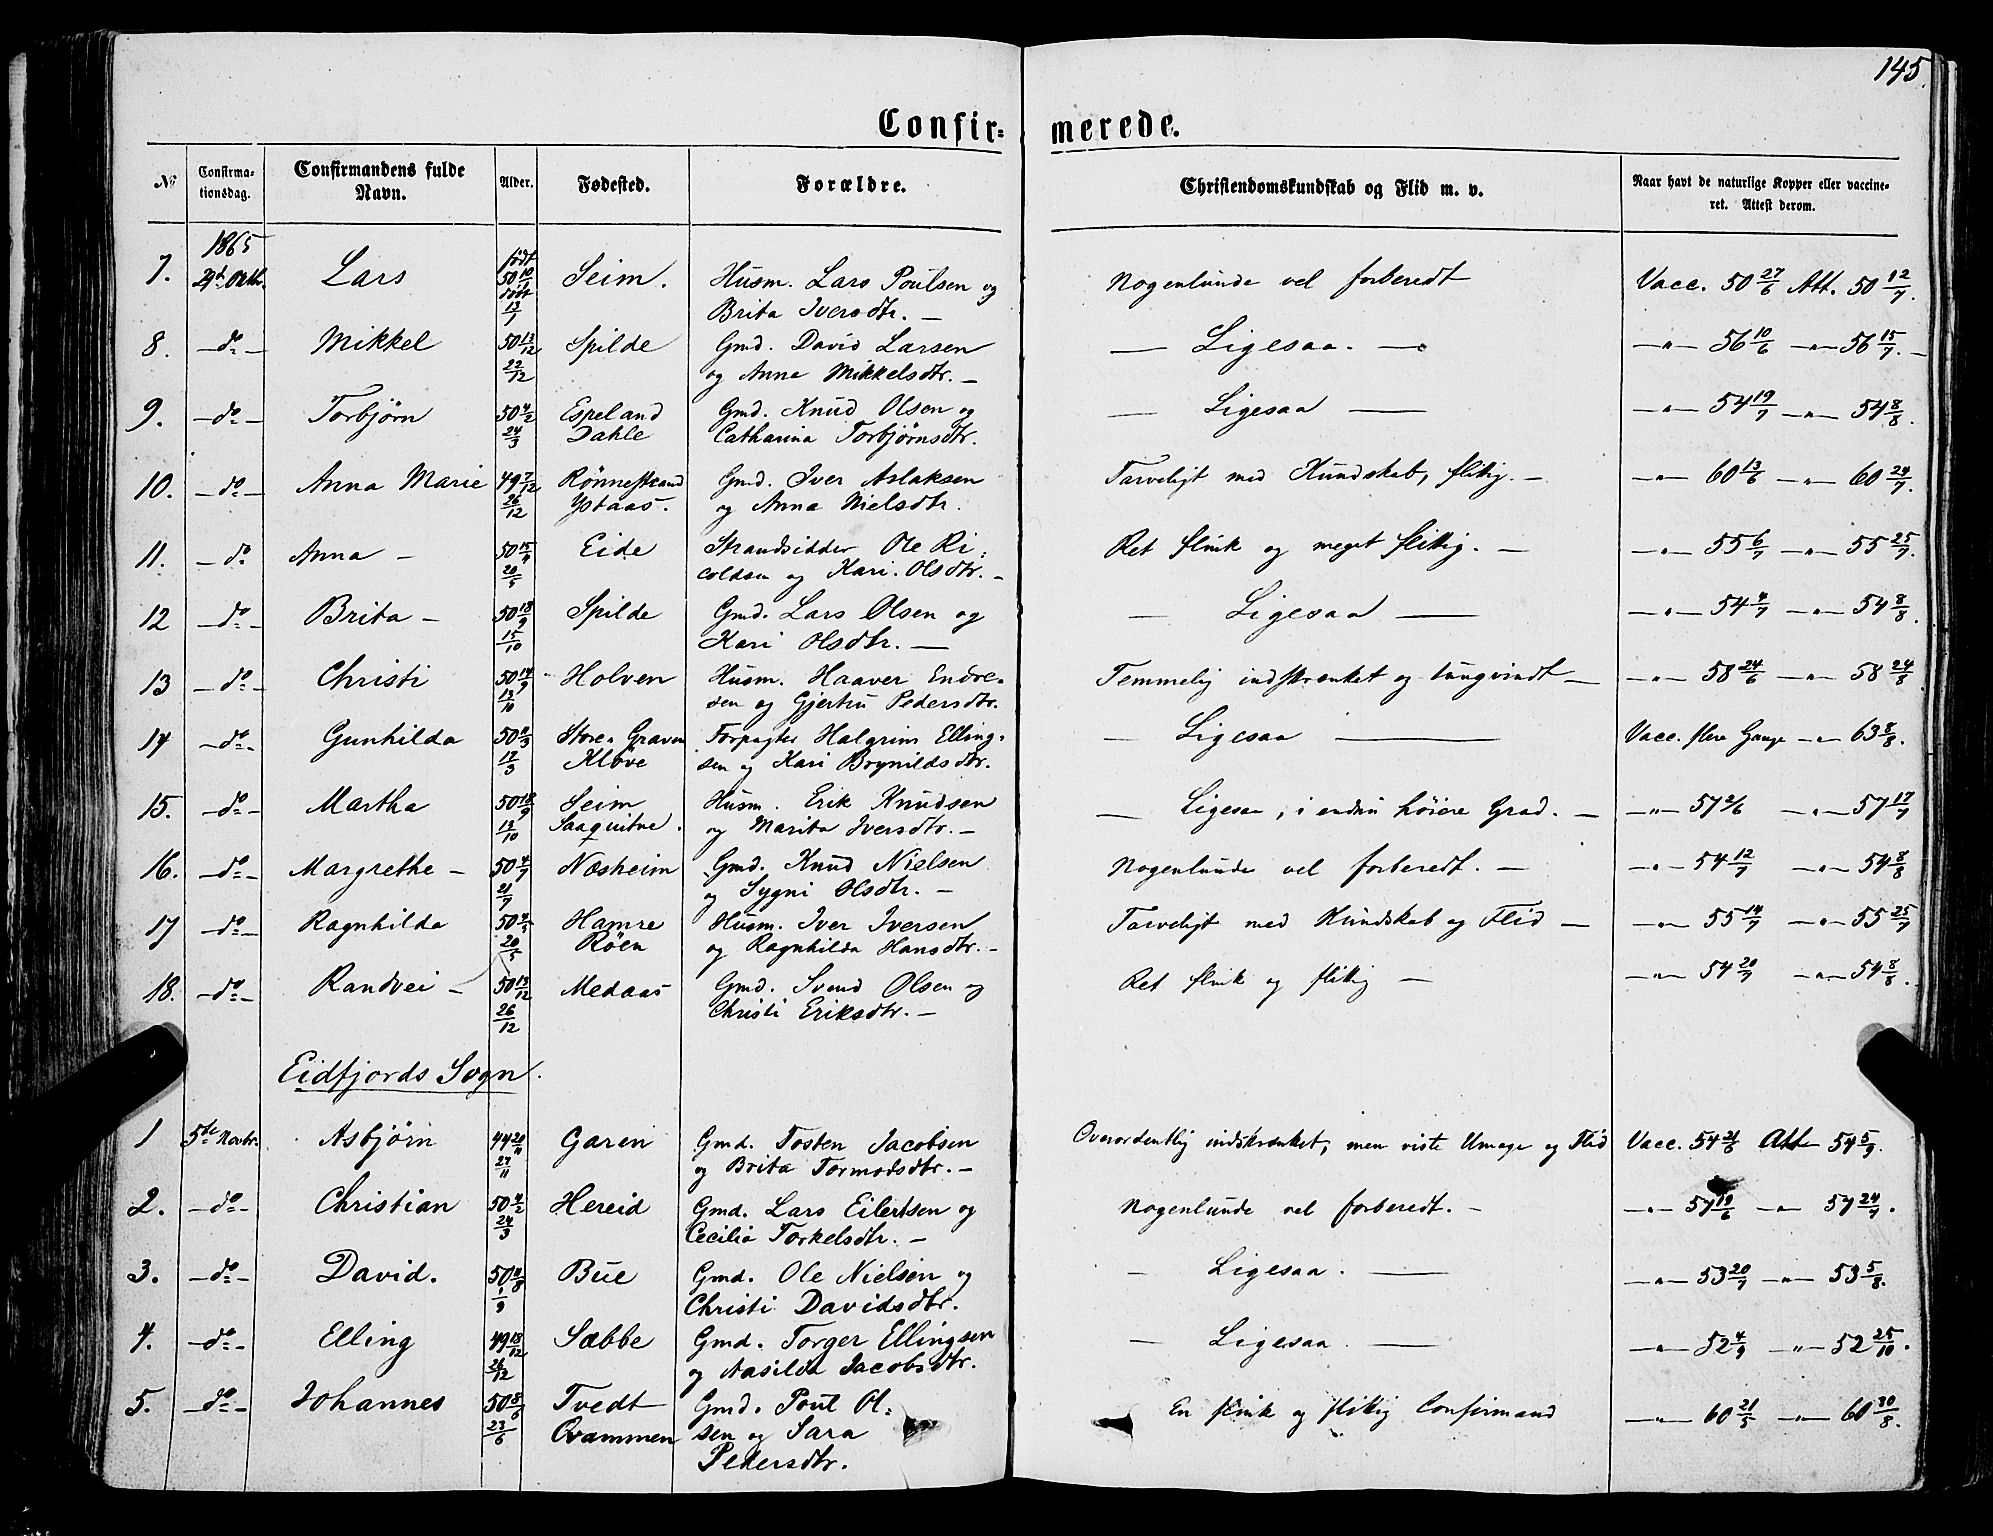 145.
Confir= merede.
№ Confirma=tionsdag. Confirmandens fulde Navn. Alder. Fødested. Forældre. Christendomskundskab og Flid m. v. Naar havt de naturlige Kopper eller vaccine=ret. Attest derom.
1865 født
7. 29de Octbr. Lars 50 10/7 Seim. Husm. Lars Poulsen og Nogenlunde vel forberedt Vacc. 50 27/6 Att. 50 12/7.
døbt 13/7 Brita Iversdtr. —
8. — do — Mikkel 50 13/12 Spilde Gmd. David Larsen — Ligesaa. — —"— 56 10/6 —"— 56 15/7. —
22/12 og Anna Mikkelsdtr. —
9. — do — Torbjørn 50 4/2 Espeland Gmd. Knud Olsen og — Ligesaa — —"— 54 19/7 —"— 54 8/8.
24/3 Dahle Catharina Torbjørnsdtr.
10. — do — Anna Marie 49 7/12 Rönnestrand Gmd. Iver Aslaksen Tarveligt med Kundskab, flitig. — —"— 60 13/6 —"— 60 24/7.
26/12 Ystaas. og Anna Nielsdtr.
11. — do Anna — 50 15/4 Eide Strandsidder Ole Ri= Ret flink og meget flittig. — —"— 55 6/7 —"— 55 25/7.
20/5 coldsen og Kari Olsdtr. —
12 — do — Brita — 50 18/9 Spilde Gmd. Lars Olsen og — Ligesaa — —"— 54 4/7 —"— 54 8/8.
15/10 Kari Olsdtr. —
13 — do — Christi 50 14/9 Holven Husm. Haaver Endre= Temmelig indskrænket og tungvindt — —"— 58 24/6 —"— 58 24/8
13/10 sen og Gjertru Pedersdtr.
14 — do — Gunhilda 50 2/3 Store-Graven Forpagter Halgrim Elling= — Ligesaa — Vacc. flere Gange —"— 63 8/8.
12/3 Klöve sen og Kari Brynildsdtr.
15. — do — Martha 50 18/9 Seim Husm. Erik Knudsen — Ligesaa, i endnu höiere Grad. — —"— 57 2/6 —"— 57 17/7
13/10 Saaquitne. og Marita Iversdtr. —
16. — do — Margrethe — 50 4/7 Næsheim Gmd. Knud Nielsen Nogenlunde vel forberedt. — —"— 54 12/7 —"— 54 8/8
21/7 og Sygni Olsdtr. —
17 — do — Ragnhilda 50 4/5 Hamre Husm. Iver Iversen Tarveligt med Kundskab og Flid — —"— 55 14/7 —"— 55 25/7
20/5 Röen og Ragnhilda Hansdtr. —
18. — do — Randvei — 50 13/12 Medaas Gmd. Svend Olsen og Ret flink og flittig — —"— 54 20/7 —"— 54 8/8.
26/12 Christi Eriksdtr. —
Eidfjords Sogn.
1 5te Novbr. Asbjørn 44 20/11 Garen Gmd. Tosten Jacobsen Overordentlig indskrænket, men viste Umage og Flid Vacc. 54 21/6 Att 54 5/9.
27/11 og Brita Tormodsdtr. —
2. — do — Christian 50 4/2 Hereid Gmd. Lars Eilertsen og Nogenlunde vel forberedt. — —"— 57 19/6 —"— 57 24/7.
24/3 Cecilia Torkelsdtr. —
3. — do — David. 50 4/8 Bue Gmd. Ole Nielsen og — Ligesaa. — —"— 53 20/7 —"— 53 5/8.
1/9 Christi Davidsdtr.
4. — do — Elling 49 18/12 Sæbbe Gmd. Torger Ellingsen — Ligesaa. — —"— 52 4/9 —"— 52 25/10.
26/12 og Aasilda Jacobsdtr.
5. — do — Johannes 50 8/6 Tvedt Gmd. Poul Ol= En flink og flittig Confirmand —"— 60 21/5 —"— 60 30/8.
23/6 Qvammen sen og Sara
Pedersdtr.